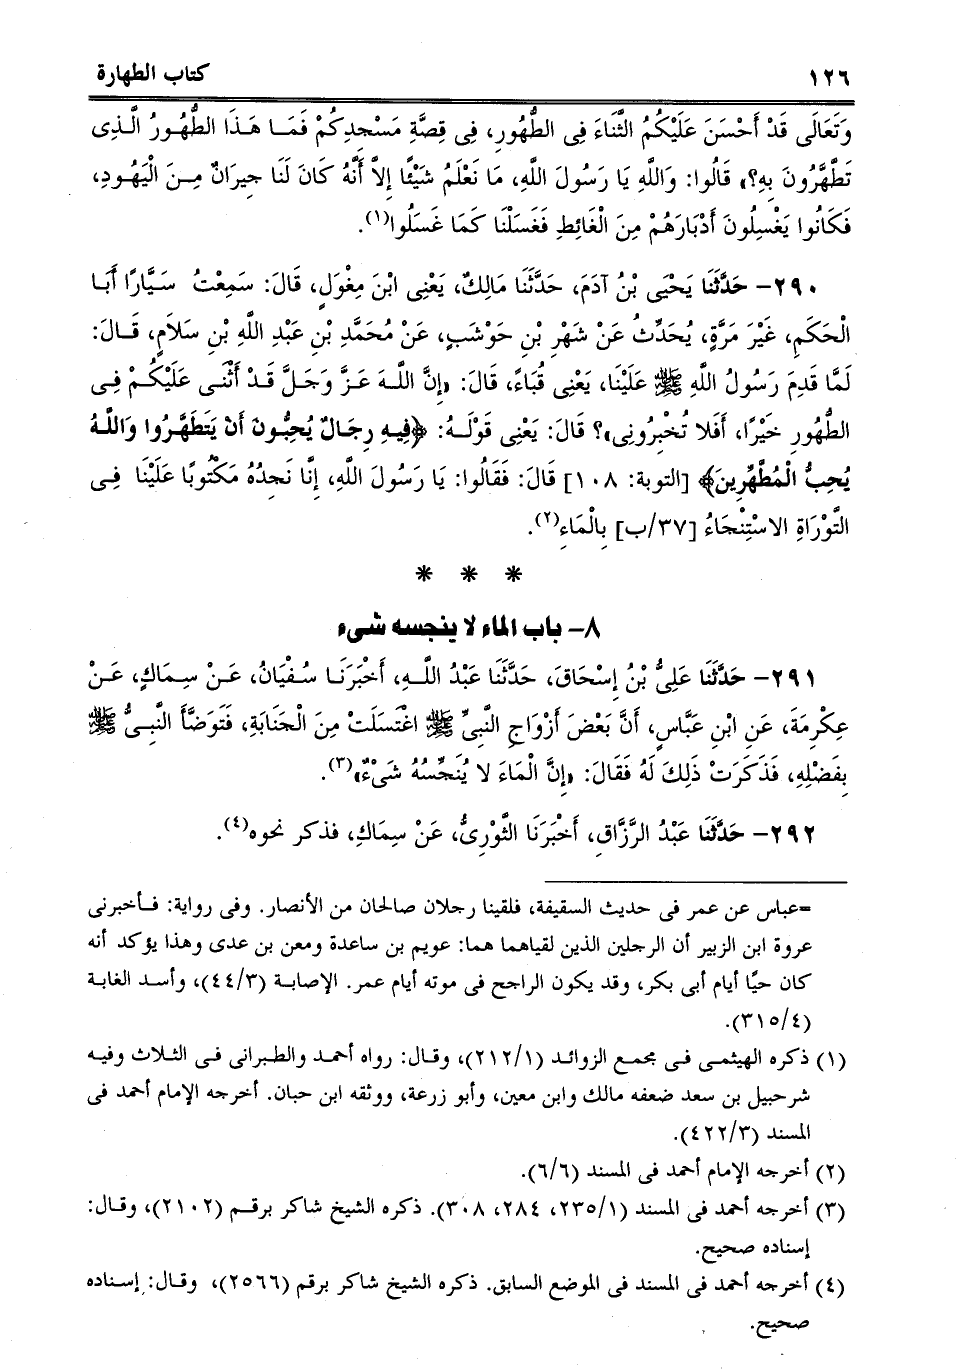 ١٢٦ كتاب الطهارة
وَتَعَالَى قَدْ أَحْسَنَ عَلَيْكُمُ الثَّنَاءَ فِى الطُّهُورِ، فِى قِصَّةِ مَسْجِدِكُمْ فَمَا هَذَا الطُّهُورُ الَّذِى
تَطَّهَّرُونَ بِهِ؟» قَالُوا: وَاللَّهِ يَا رَسُولَ اللَّهِ، مَا نَعْلَمُ شَيْئًا إِلاَّ أَنَّهُ كَانَ لَنَا جِيرَانٌ مِنَ الْيَهُودِ،
فَكَانُوا يَغْسِلُونَ أَدْبَارَهُمْ مِنَ الْغَائِطِ فَغَسَلْنَا كَمَا غَسَلُوا(١).
٢٩٠- حَدَّثَنَا يَحْيَى بْنُ آدَمَ، حَدَّثَنَا مَالِكٌ، يَعْنِى ابْنَ مِغْوَلٍ، قَالَ: سَمِعْتُ سَيَّارًا أَبَا
الْحَكَمِ، غَيْرَ مَرَّةٍ، يُحَدِّثُ عَنْ شَهْرِ بْنِ حَوْشَبٍ، عَنْ مُحَمَّدِ بْنِ عَبْدِ اللَّهِ بْنِ سَلاَمٍ، قَالَ:
لَمَّا قَدِمَ رَسُولُ اللَّهِ ﷺ عَلَيْنَا، يَعْنِى قُبَاءً، قَالَ: «إِنَّ اللَّهَ عَزَّ وَجَلَّ قَدْ أَثْنَى عَلَيْكُمْ فِى
الطُّهُورِ خَيْرًا، أَفَلا تُخْبِرُونِى»؟ قَالَ: يَعْنِى قَوْلَهُ: ﴿فِيهِ رِجَالٌ يُحِبُّونَ أَنْ يَتَطَهَّرُوا وَاللَّهُ
يُحِبُّ الْمُطَّهِّرِينَ﴾ [التوبة: ١٠٨] قَالَ: فَقَالُوا: يَا رَسُولَ اللَّهِ، إِنَّا نَجِدُهُ مَكْتُوبًا عَلَيْنَا فِى
التَّوْرَاةِ الاسْتِنْجَاءُ [٣٧/ب] بِالْمَاءِ(٢).
* * *
٨- باب الماء لا ينجسه شىء
٢٩١- حَدَّثَنَا عَلِىُّ بْنُ إِسْحَاقَ، حَدَّثَنَا عَبْدُ اللَّهِ، أَخْبَرَنَا سُفْيَانُ، عَنْ سِمَاكٍ، عَنْ
عِكْرِمَةَ، عَنِ ابْنِ عَبَّاسٍ، أَنَّ بَعْضَ أَزْوَاجِ النَّبِىِّ ﷺ اغْتَسَلَتْ مِنَ الْجَنَابَةِ، فَتَوَضَّأَ النَّبِىُّ ﷺ
بِفَضْلِهِ، فَذَكَرَتْ ذَلِكَ لَهُ فَقَالَ: «إِنَّ الْمَاءَ لا يُنَجِّسُهُ شَىْءٌ»(٣).
٢٩٢- حَدَّثَنَا عَبْدُ الرَّزَّاقِ، أَخْبَرَنَا الثَّوْرِىُّ، عَنْ سِمَاكِ، فذكر نحوه(٤).
=عباس عن عمر فى حديث السقيفة، فلقينا رجلان صالحان من الأنصار. وفى رواية: فأخبرنى
عروة ابن الزبير أن الرجلين الذين لقياهما هما: عويم بن ساعدة ومعن بن عدى وهذا يؤكد أنه
كان حيًا أيام أبى بكر، وقد يكون الراجح فى موته أيام عمر. الإصابة (٤٤/٣)، وأسد الغابة
(٣١٥/٤).
(١) ذكره الهيثمى فى مجمع الزوائد (٢١٢/١)، وقال: رواه أحمد والطبرانى فى الثلاث وفيه
شرحبيل بن سعد ضعفه مالك وابن معين، وأبو زرعة، ووثقه ابن حبان. أخرجه الإمام أحمد فى
المسند (٤٢٢/٣).
(٢) أخرجه الإمام أحمد فى المسند (٦/٦).
(٣) أخرجه أحمد فى المسند (٢٣٥/١، ٢٨٤، ٣٠٨). ذكره الشيخ شاكر برقم (٢١٠٢)، وقال:
إسناده صحيح.
(٤) أخرجه أحمد فى المسند فى الموضع السابق. ذكره الشيخ شاكر برقم (٢٥٦٦)، وقال: إسناده
صحيح.